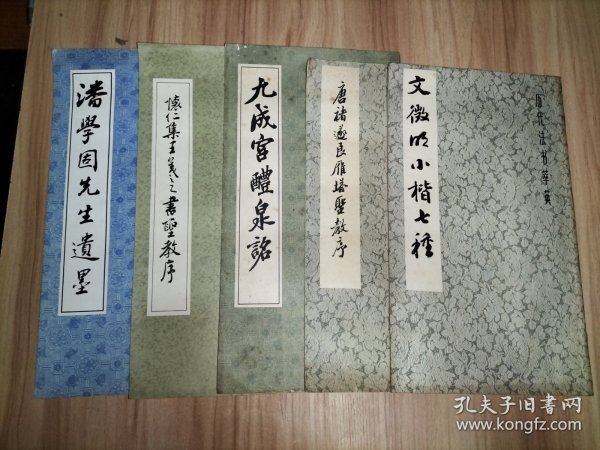 潘學固先生遺墨
懷仁集王羲之書聖教序
九成宮醴泉銘
唐褚遂良雁塔聖教序
文徵明小楷七種
历代法书萃英
孔夫子旧书网
www.kongfz.com